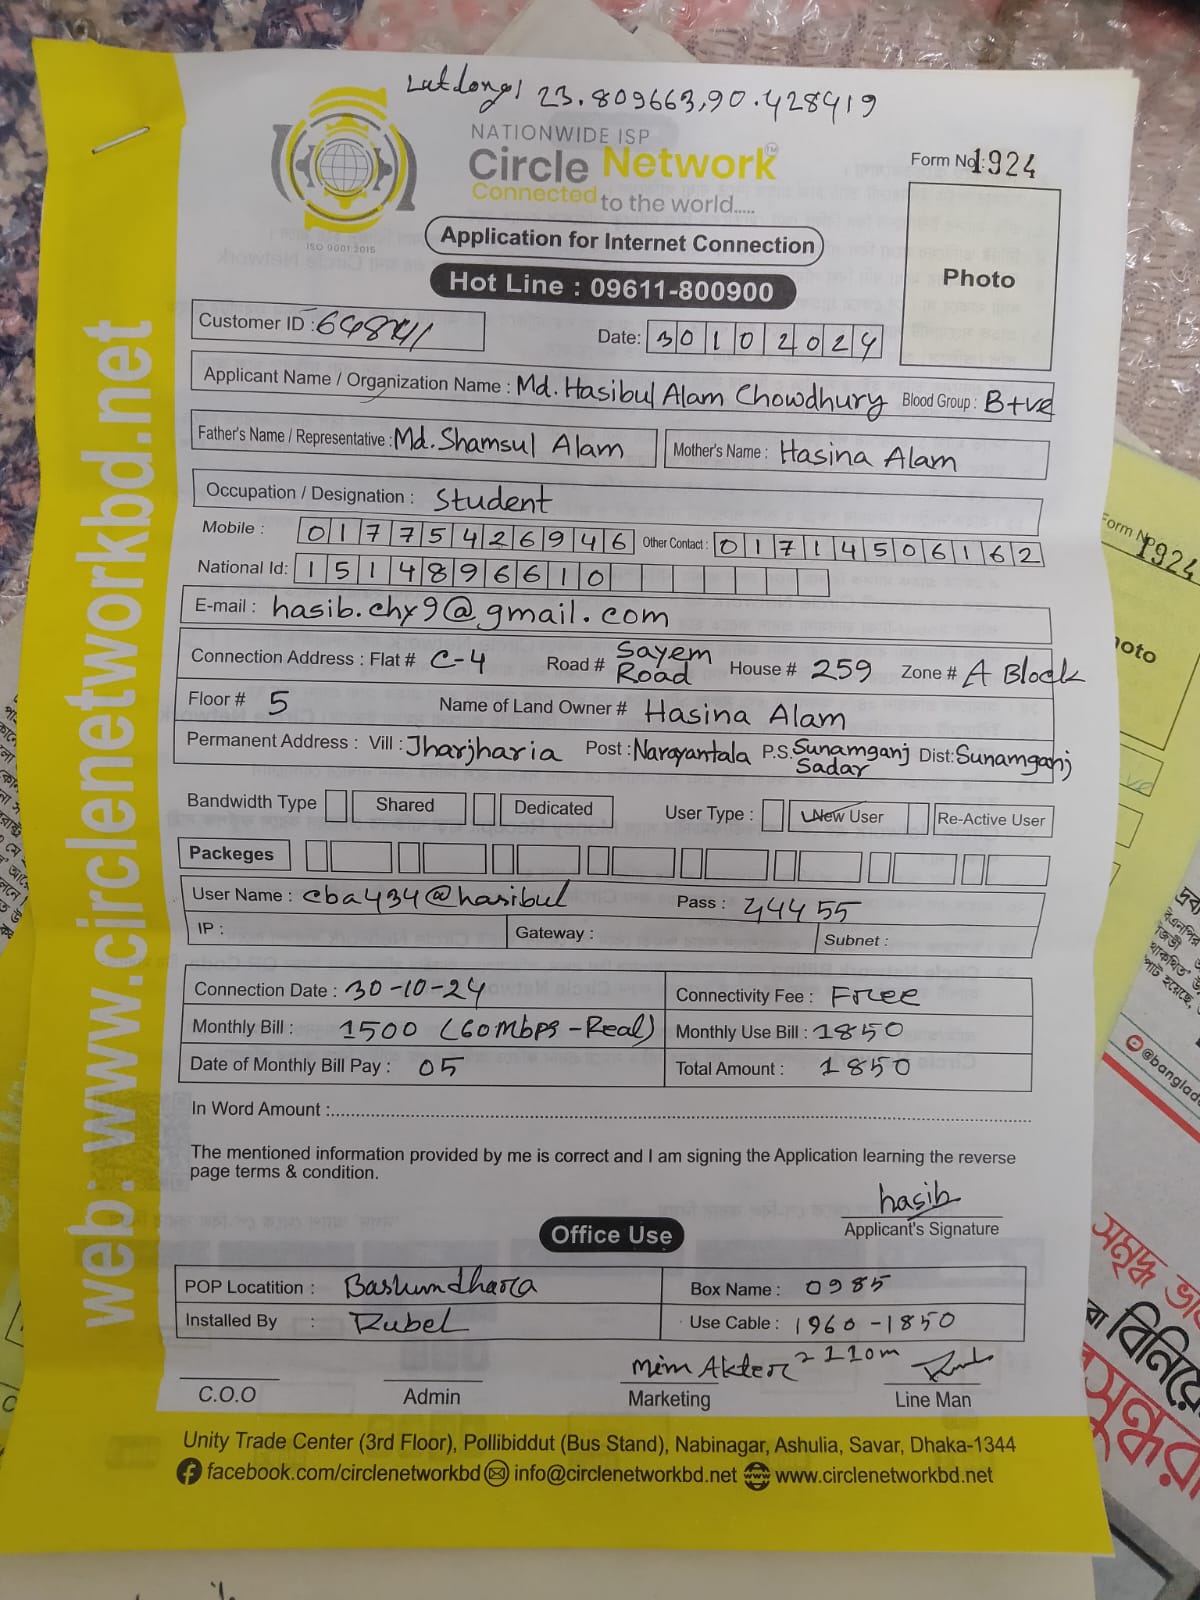 Latlongl 23.809663,90.428419
NATIONWIDE ISP
Circle Network™
Connected to the world.....
ISO 9001:2015
Form No.: 1924
Photo
Application for Internet Connection
Hot Line : 09611-800900
Customer ID :
Date: 30102024
Applicant Name / Organization Name : Md. Hasibul Alam Chowdhury Blood Group : B+ve
Father's Name / Representative : Md. Shamsul Alam Mother's Name : Hasina Alam
Occupation / Designation : Student
Mobile : 01775426946 Other Contact : 01714506162
National Id: 1514896610
E-mail : hasib.chy9@gmail.com
Connection Address : Flat # C-4 Road # Sayem Road House # 259 Zone # A Block
Floor # 5 Name of Land Owner # Hasina Alam
Permanent Address : Vill : Jharjharia Post : Narayantala P.S. Sunamganj Sadar Dist: Sunamganj
Bandwidth Type Shared Dedicated User Type : New User Re-Active User
Packeges
User Name : cba434@hasibul Pass : 44455
IP : Gateway : Subnet :
Connection Date : 30-10-24 Connectivity Fee : Free
Monthly Bill : 1500 (60Mbps-Real) Monthly Use Bill : 1850
Date of Monthly Bill Pay : 05 Total Amount : 1850
In Word Amount :
The mentioned information provided by me is correct and I am signing the Application learning the reverse
page terms & condition.
hasib
Applicant's Signature
Office Use
POP Locatition : Bashundhara Box Name : 0985
Installed By : Rubel Use Cable : 1960-1850
Mim Akter = 110m
C.O.O Admin Marketing Line Man
Unity Trade Center (3rd Floor), Pollibiddut (Bus Stand), Nabinagar, Ashulia, Savar, Dhaka-1344
facebook.com/circlenetworkbd info@circlenetworkbd.net www.circlenetworkbd.net
web: www.circlenetworkbd.net
Form No. 1924
সমৃদ্ধ